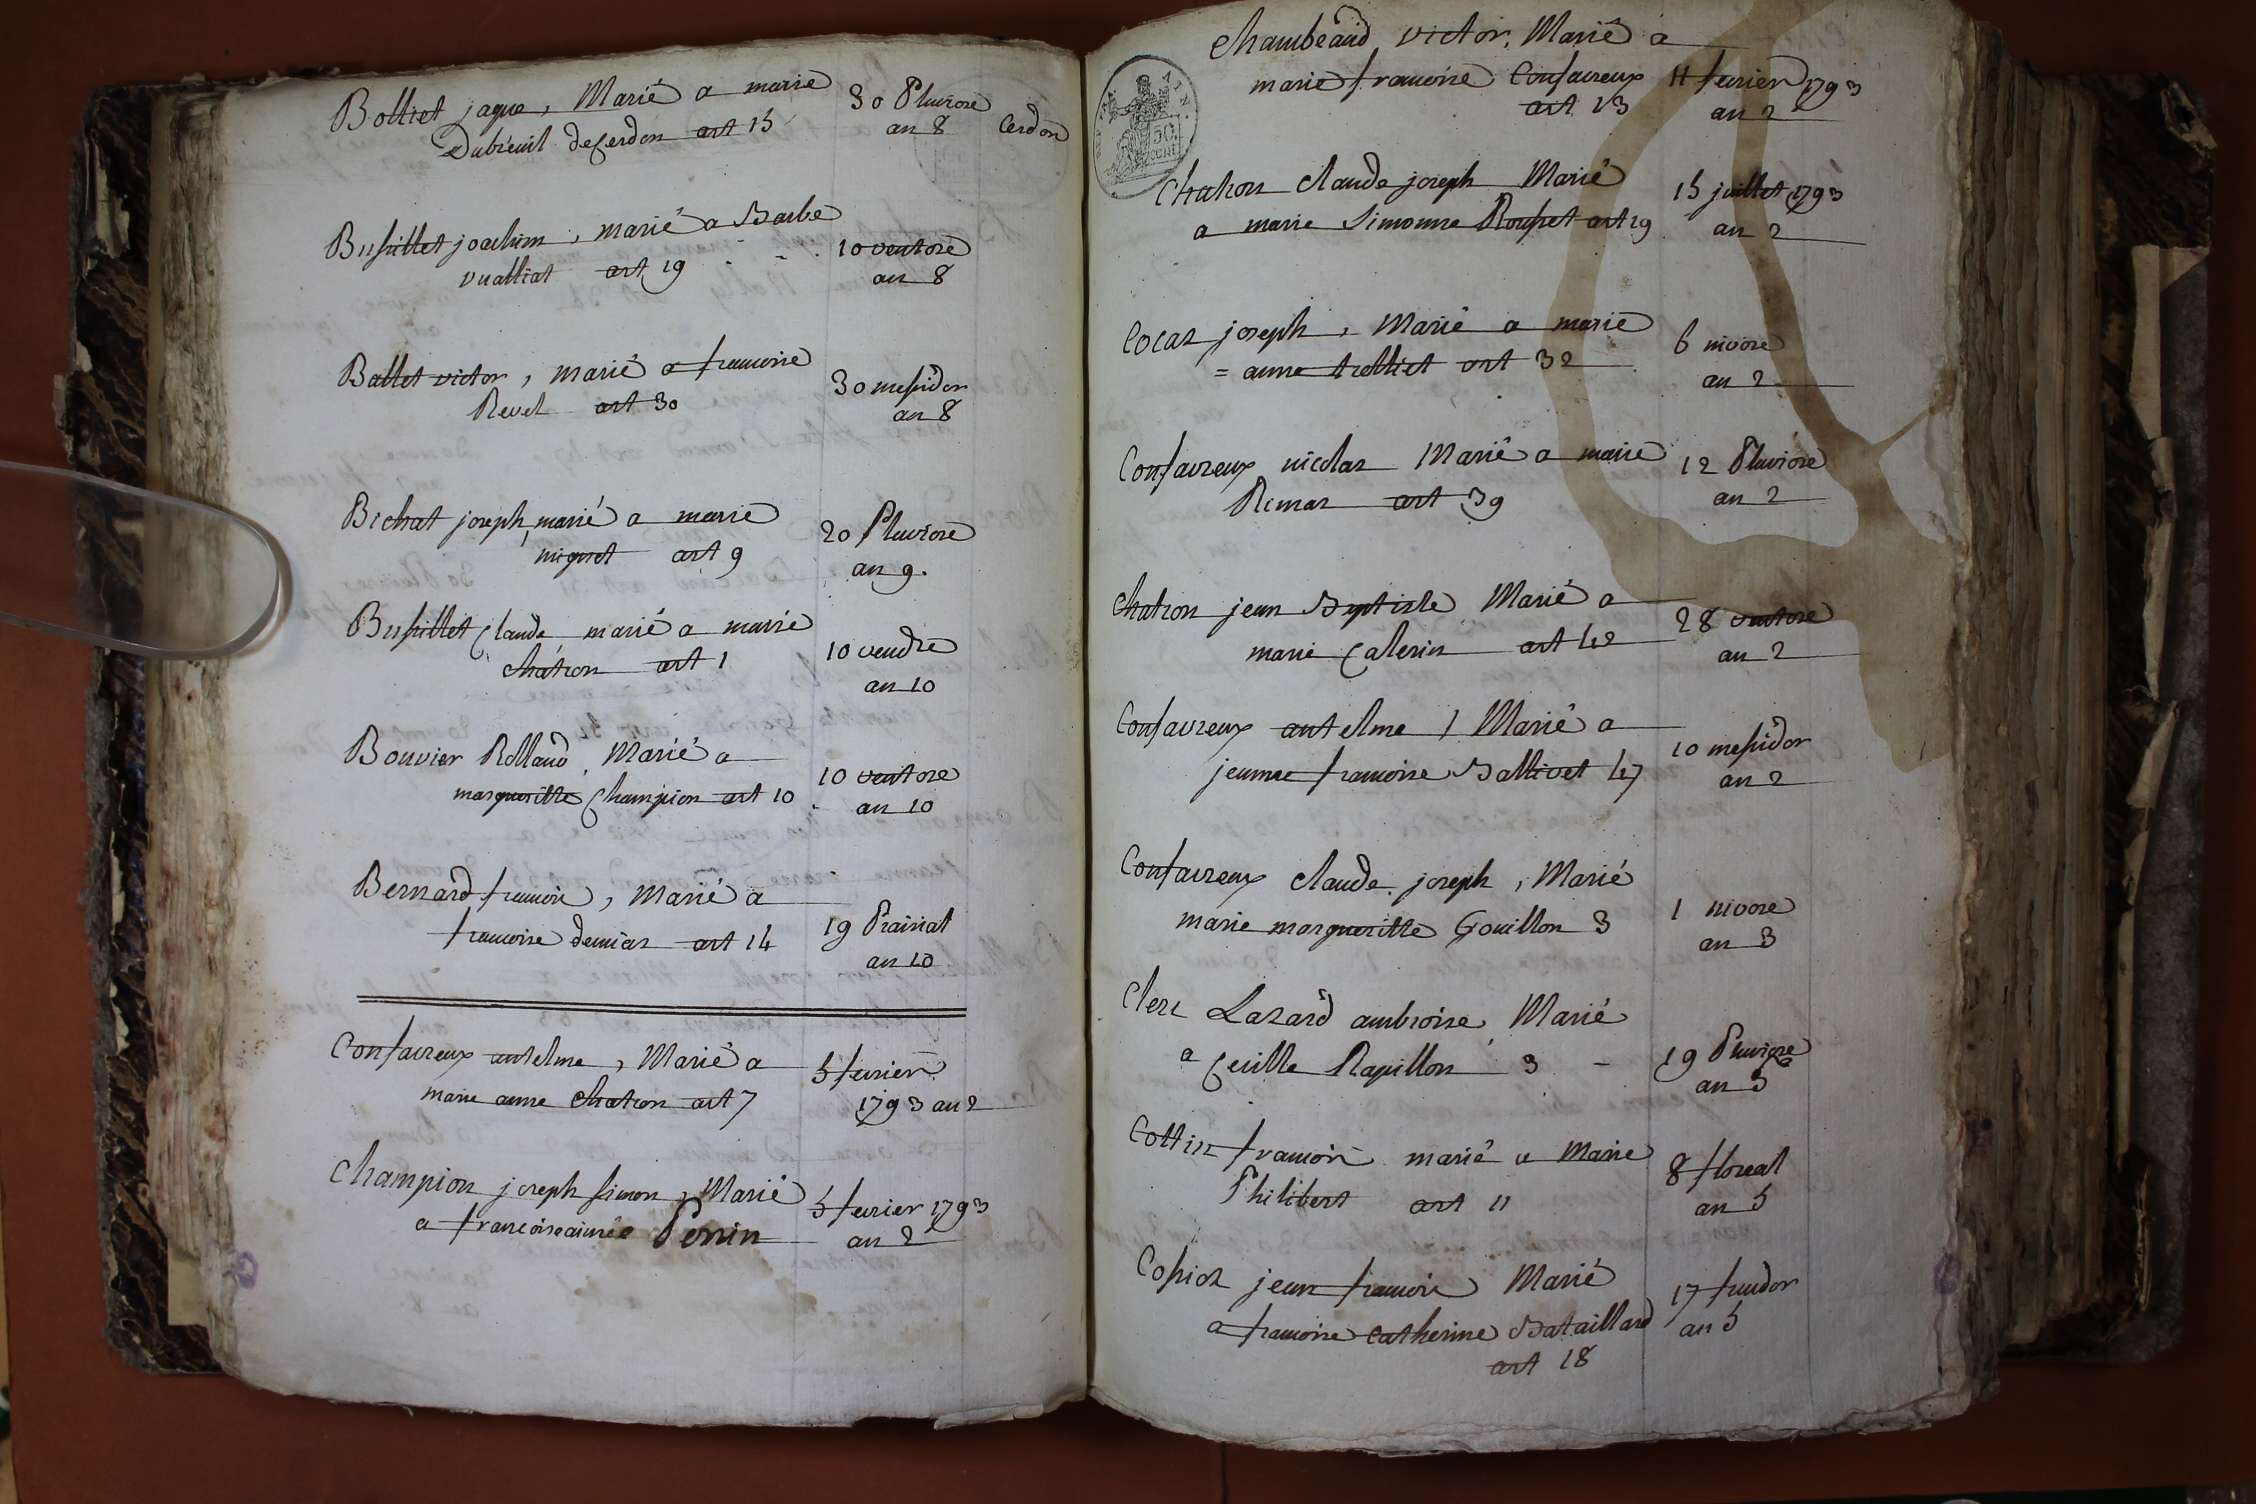 Bolliet jaque, Marié a marie 30 Pluviose
Dubreuil de Cerdon art 15 an 8 Cerdon
Bussillet joachim, marié a Barbe 10 ventose
vualliat art 19 - - an 8
Ballet victor, marié a francoise 30 messidor
Revel art 30 an 8
Bichat joseph, marié a marie 20 Pluviose
niquet art 9 an 9.
Bussillet Claude marié a marie 10 vendre
chatron art 1 an 10
Bouvier Rolland, Marié a 10 ventose
margueritte Champion art 10 an 10
Bernard francois, Marié a 19 Prairial
francoise demias art 14 an 10
Confavreux antelme, Marié a 5 fevrier
marie anne Chatron art 7 1793 an 2
Champion joseph simon, Marié 5 fevrier 1793
a francoise aimée Perrin an 2
Chambeaud victor, Marié a
marie francoise Confavreux 11 fevrier 1793
art 13 an 2
AIN.
50 cent
Chatron Claude joseph Marié 15 juillet 1793
a marie Simonne Rousset art 19 an 2
Cocaz joseph, Marié a marie 6 nivose
= anne trolliet art 32 an 2
Confavreux nicolas Marié a marie 12 Pluviose
Rimaz art 39 an 2
Chatron jean Baptiste Marié a 28 ventose
marie Calerin art 42 an 2
Confavreux antelme, Marié a 10 messidor
jeanne francoise Ballivet 47 an 2
Confavreux Claude joseph, Marié 1 nivose
marie margueritte Gouillon 3 an 3
Clerc Lazard ambroise, Marié
a Cecille Rapillon 3 - 19 Pluviose
an 5
Cottin francois marié a Marie 8 floreal
Philibert art 11 an 5
Cossioz jean francois Marié 17 frudor
a francoise catherine Bataillard an 5
art 18